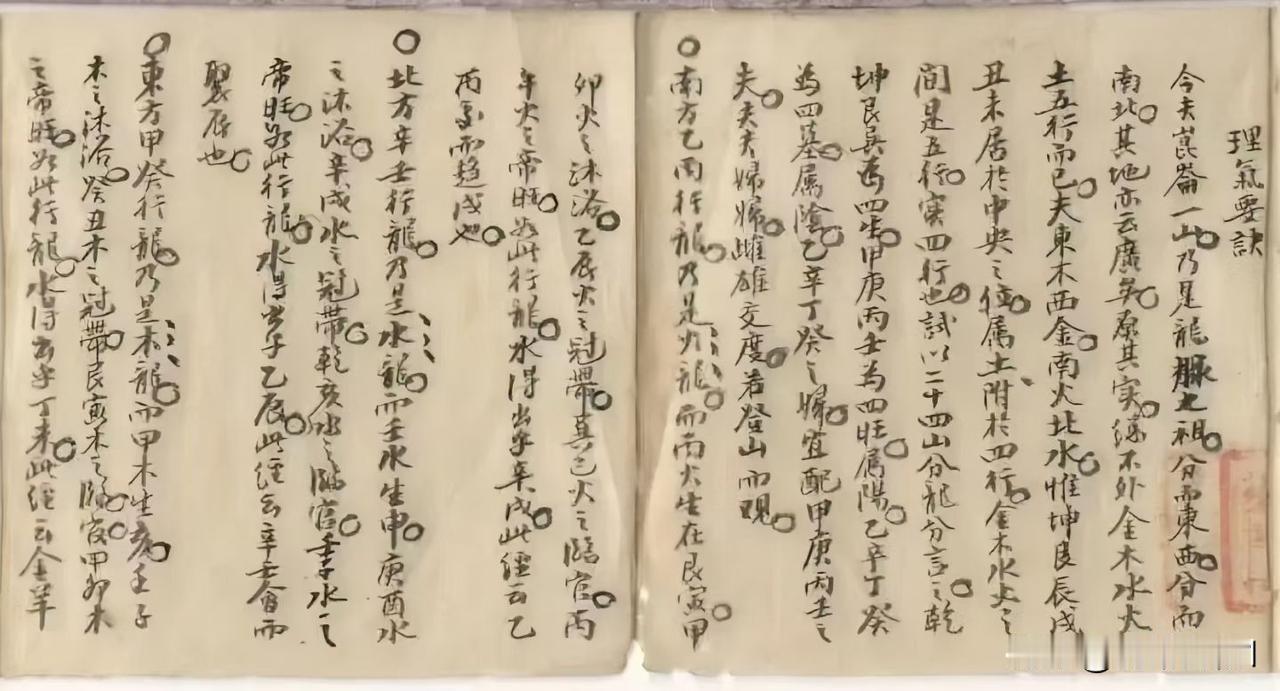 理氣要訣
今夫崑崙一山乃是龍脈之祖分而東西分而
南北其地亦云廣矣原其實總不外金木水火
土五行而已夫東木西金南火北水惟坤艮辰戌
丑未居於中央之位属土附於四行金木水火之
間是五行实四行也試以二十四山分龍分言之乾
坤艮巽為四生甲庚丙壬為四旺属陽乙辛丁癸
為四墓属陰乙辛丁癸之婦宜配甲庚丙壬之
夫夫夫婦婦雌雄交度若登山而观
南方乙丙行龍乃是火龍而丙火生在艮寅甲
卯火之沐浴乙辰火之冠帶巽巳火之臨官丙
午火之帝旺如此行龍水得出字辛戌此經云乙
丙交而趋戌也
北方辛壬行龍乃是水龍而壬水生申庚酉水
之沐浴辛戌水之冠帶乾亥水之臨官壬子水之
帝旺如此行龍水得出字乙辰此經云辛壬會而
聚辰也
東方甲癸行龍乃是木龍而甲木生亥壬子
木之沐浴癸丑木之冠帶艮寅木之臨官甲卯木
之帝旺如此行龍水得出字丁未此經云金羊